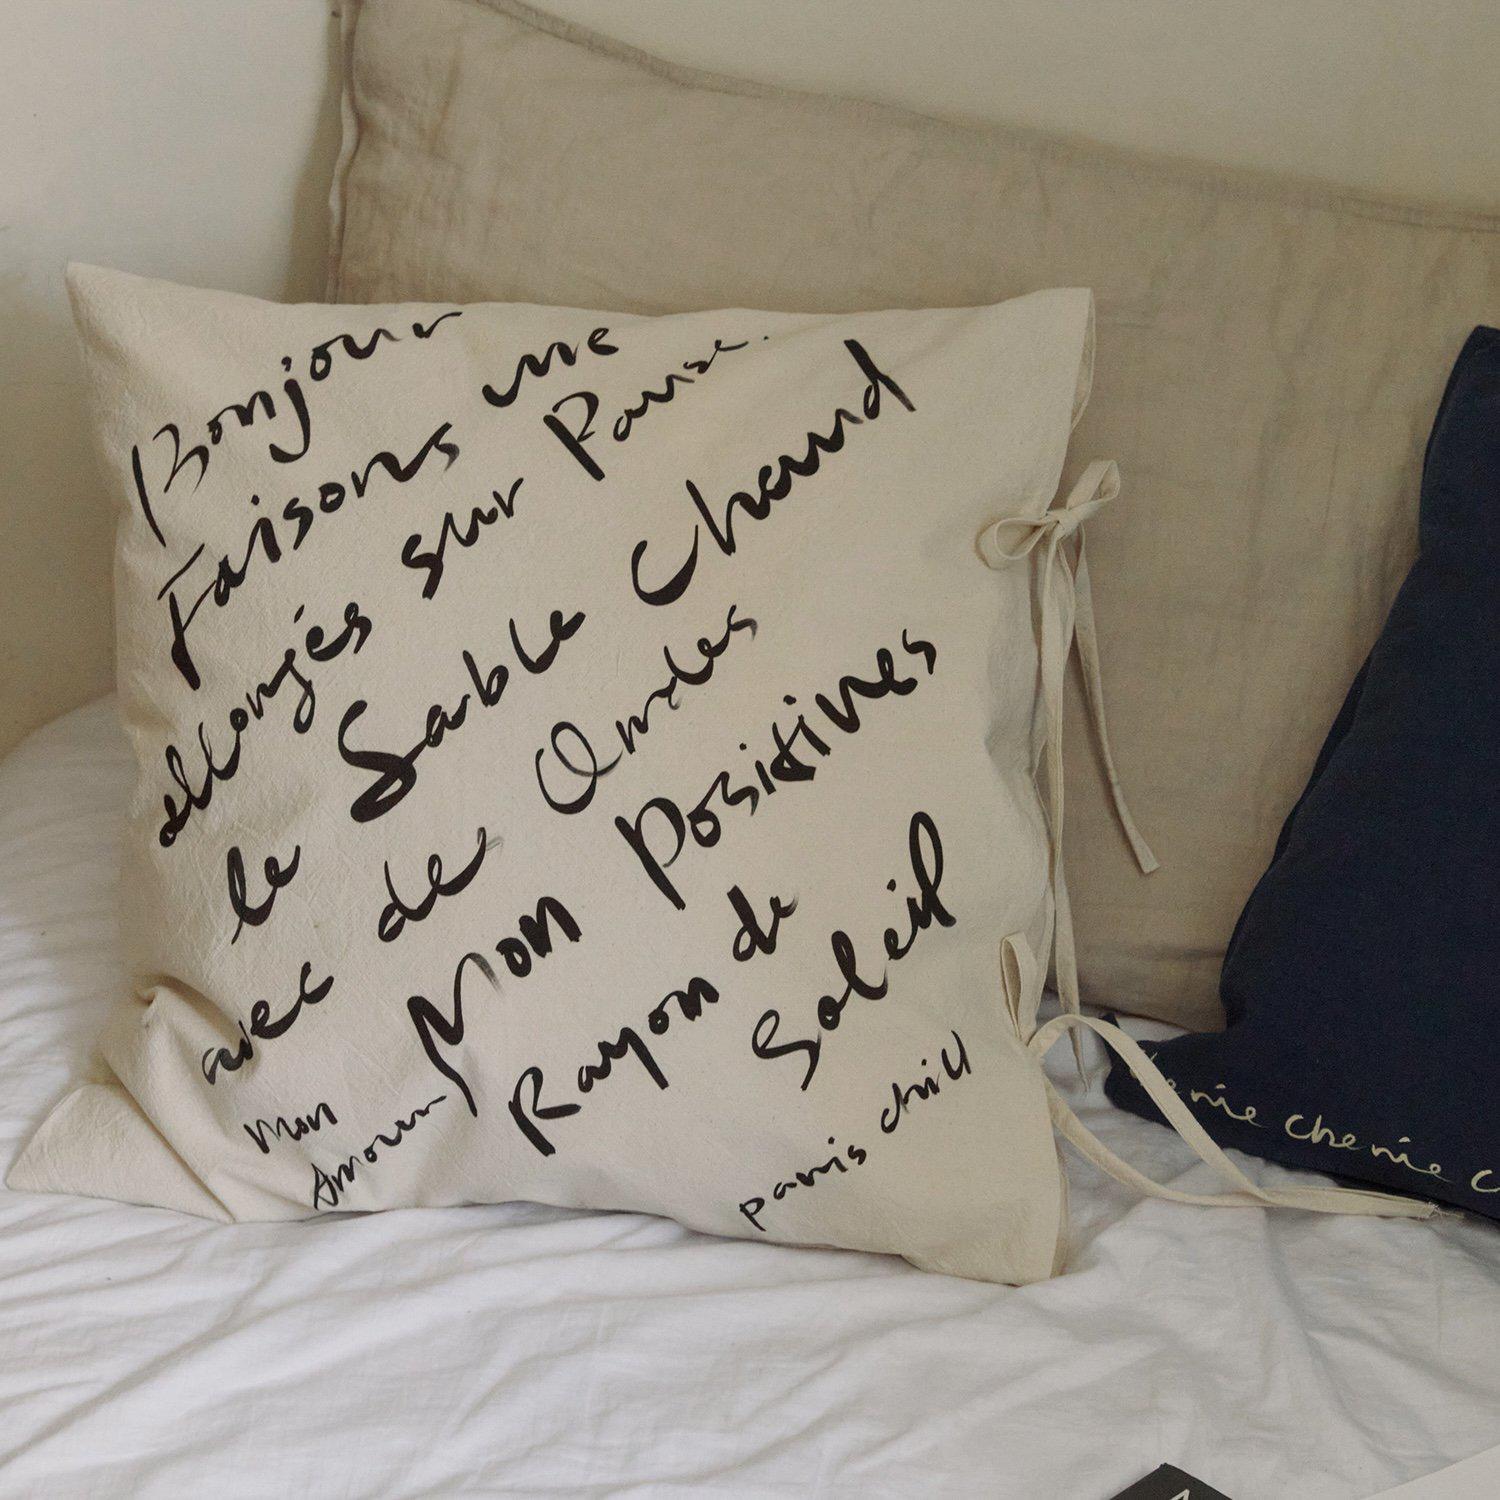 Bonjour
Faisons une Pause.
allongés sur
le Sable Chaud
avec des Ondes
Positives
Mon Amour
Mon
Rayon de
Soleil
paris chill
cherie c